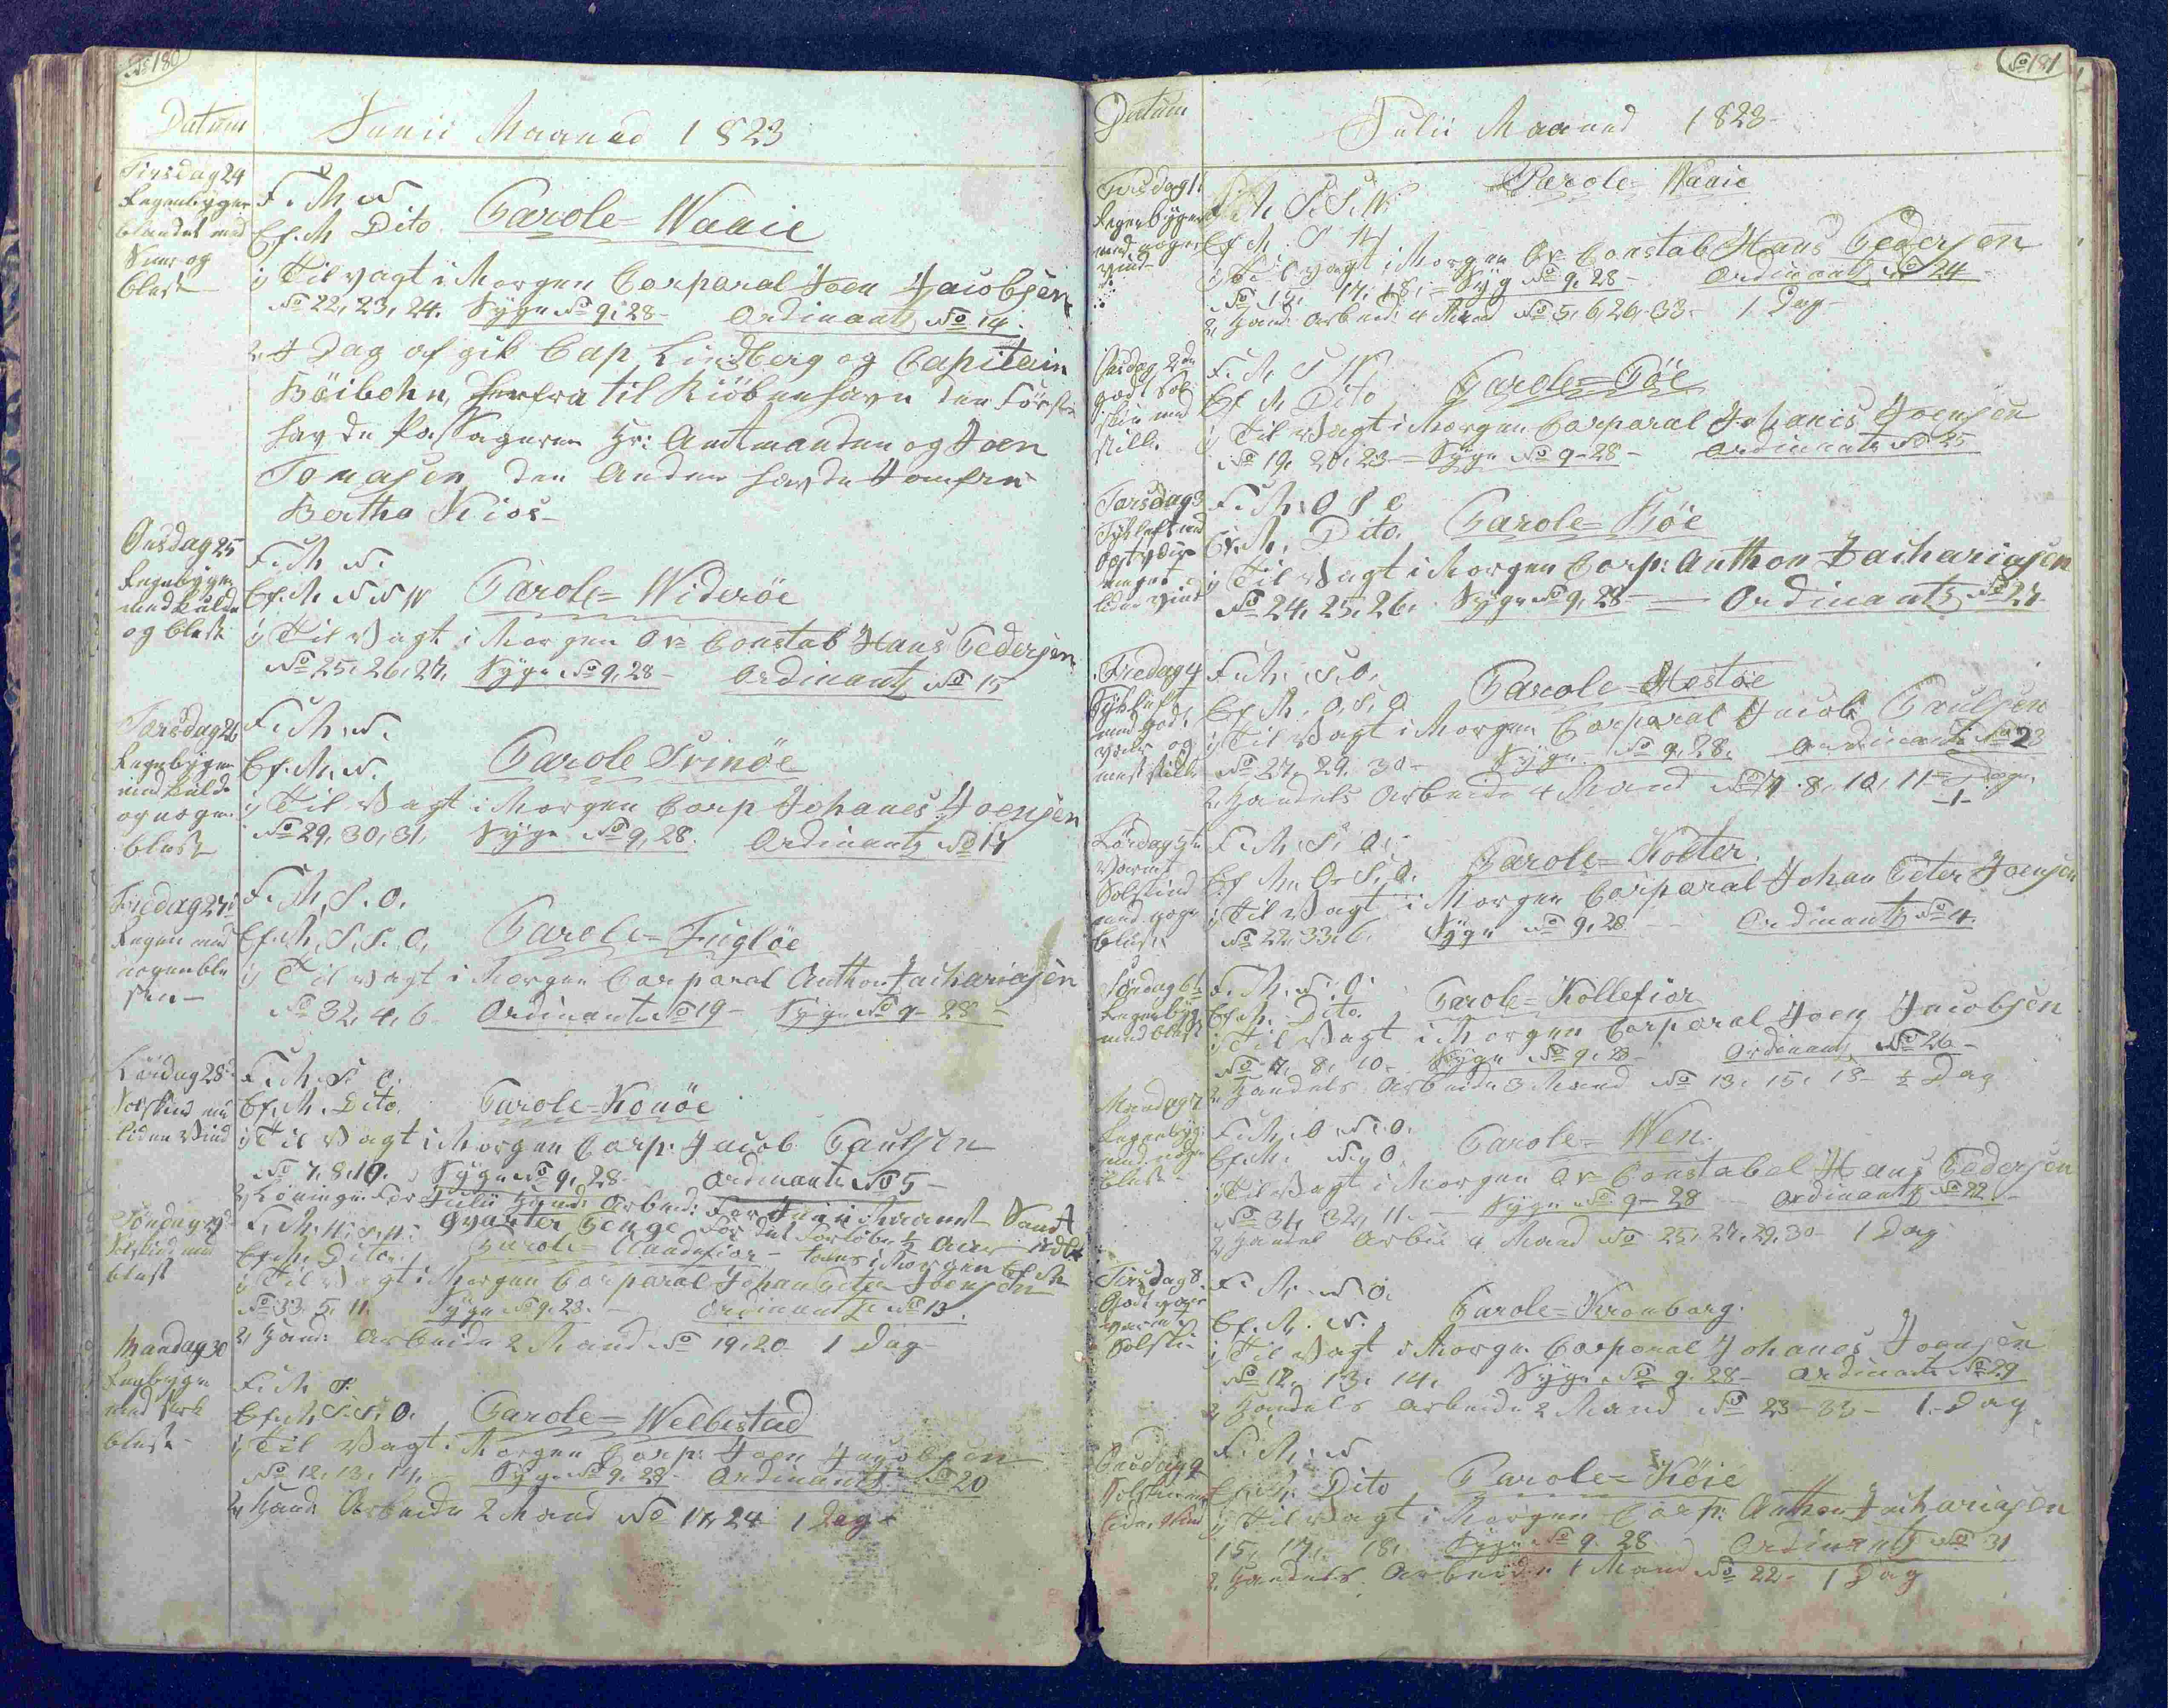 No 180
Datum
Junii Maaned 1823
Tirsdag 24
Regenbyger
blandet med
Snee og
blæst
F. M N
Ef. M Dito Parole= Naaie
1, Til vagt i Morgen Corporal Joen Jacobsen
No 22, 23, 24. Syge No 9, 28 - Ordinants No 14.
2, I Dag af gik Cap Lindberg og Capitain
Böibohn, herfra til Kiöbenhavn den Förste
havde Passagerer Hr: Amtmanden og Joen
Tomasen den Anden havde Jomfru
Bertha
Onsdag 25
Regnbyger
med kulde
og blæst
F. M N.
Ef. M N N W Parole= Wideröe
1, Til Vagt i Morgen Or Constab Hans Pedersen
No 25, 26, 27, Syge No 9, 28 - Ordinants No 15
Torsdag 26
Regnbyger
med kulde
og nogen
blæst
F. M. N.
Ef. M. N. Parole Svinöe
1, Til Vagt i Morgen Corp Johanes Joensen
No 29, 30, 31, Syge No 9, 28. Ordinants No 17
Fredag 27
Regen med
nogen blæ
sen -
F. M, S. O.
Ef. M, S. S. O, Parole= Fuglöe
1, Til vagt i Morgen Corporal Anthon Zachariasen
No 32, 4, 6 - Ordinants No 19 - Syge No 9 - 28 -
Lördag 28
Solskin med
liden Vind
F. M. S. O.
Ef. M. Dito. Parole= Konöe
1, Til Vagt i Morgen Corp: Jacob Paulsen
No 7, 8, 10. Syge No 9, 28 - Ordinants No 5 -
Söndag 29
Solskin med
blæst
Ef. M. Dito.
1, Til Vagt i Morgen Corporal Johan Peter Joensen
No 33. 5, 11. Syge No 9, 28. - Ordinants No 13.
2, Hand: Arbeide 2 Mand No 19, 20 - 1 Dag -
Mandag 30
Regbyger
med stærk
blæst -
F. M S.
Ef. M S. S. O. Parole= Welbestad
1, Til Vagt i Morgen Corp: Joen Jacobsen
No 12, 13, 14, - Syge No 9, 28 - Ordinants No 20
2, Hand: Arbeide 2 Mand No 17, 24 1 Dag -
No 181
Datum
Julii Maaned 1823 -
Parole= Naaie
Tirsdag 1.
Regenbyger
med nogen
vind -
F. M. S. S. W.
Ef. M. S W
1, Til Vagt i Morgen Or Constab Hans Pedersen
No 15, 17, 18, - Syg No 9, 28 - Ordinants No 24
2, Hand: Arbeid: 4 Mand No 5, 6, 26, 33 - 1 Dag -
Onsdag 2de
godt Sol
skin med
stille
F. M, S W
Ef. M Dito Parole=
1, Til Vagt i Morgen Corporal Johanis Joensen
No 19, 20, 23 - Syge No 9 - 28 - Ordinants No 25
Torsdag 3
liden vind
Ef. M. Dito. Parole=
1, Til Vagt i Morgen Corp: Anthon Zachariasen
No 24, 25, 26. Syge No 9, 28 - Ordinants No 27
Fredag 4
Tyk luft
med godt
veir og
mest stille
F. M. S. O.
Ef. M. O, S, O Parole= Hestöe
1, Til Vagt i Morgen Corporal Jacob Paulsen
No 27, 29, 30 - Syge - No 9, 28. Ordinants No 23
2, Handels Arbeide 4 Mand No 7, 8, 10, 11 - Dage,
- 1 -
Lördag 5te
Varmt
Solskind
med nogen
blæst
F. M. S. O.
Ef. M. O. S. O. Parole= Kolter.
1, Til Vagt i Morgen Corporal Johan Peter Joensen
No 22, 33, 6. Syge No 9, 28 - Ordinants No 4.
Söndag 6te
Regenbyg
med blæst
F. M. N. O.
Ef. M. Dito. Parole= Kollefior
1, Til Vagt i Morgen Corporal Joen Jacobsen
No 7, 8, 10. Syge No 9, 28 - Ordinants No 26 -
2, Handels Arbeide 3 Mand No 13, 15, 18 - ½ Dag
Mandag 7
Regenbyg:
med nogen
blæst -
F. M. O N. O.
Ef. M. N. O Parole= Wen.
1, Til Vagt i Morgen Or Constabel Hans Pedersen
No 31, 32, 11. - Syge No 9 - 28 - Ordinants No 22 -
2, Handel Arbei 4 Mand No 25, 27, 29, 30 - 1 Dag
Tirsdag 8.
Godt veir
varmt
Solskin
F. M. N O.
Ef. M. N. Parole= Kronborg.
1, Til Vagt i Morgen Corporal Johanes Joensen
No 12, 13, 14, Syge No 9. 28 - Ordinants No 29
2, Handels Arbeide 2 Mand No 23 - 33 - 1 - Dag
Onsdag 9
Solskin med
liden Vind
F. M. N
Ef. M. Dito Parole= Köie
1, Til Vagt i Morgen Corp: Anthon Zachariasen
15, 17, - 18, Syge No 9. 28 Ordinants No 31
2, Handels Arbeide 1 Mand No 22 - 1 Dag